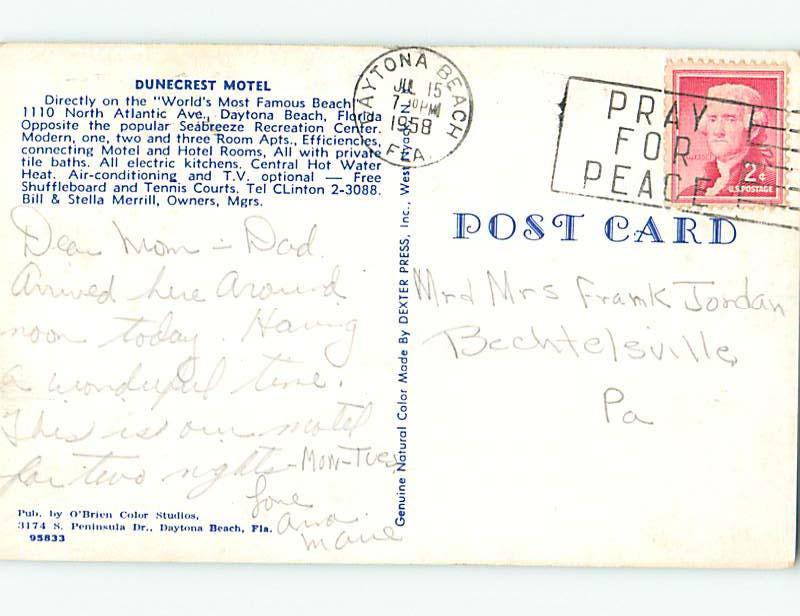 DUNECREST MOTEL
Directly on the "World's Most Famous Beach"
1110 North Atlantic Ave., Daytona Beach, Florida
Opposite the popular Seabreeze Recreation Center.
Modern, one, two and three Room Apts., Efficiencies,
connecting Motel and Hotel Rooms, All with private
tile baths. All electric kitchens. Central Hot Water
Heat. Air-conditioning and T.V. optional — Free
Shuffleboard and Tennis Courts. Tel CLinton 2-3088.
Bill & Stella Merrill, Owners, Mgrs.
Dear Mom - Dad.
Arrived here around
noon today. Having
a wonderful time.
This is our motel
for two nights - Mon-Tues
Love
Marie
Pub. by O'Brien Color Studios,
3174 S. Peninsula Dr., Daytona Beach, Fla.
95833
Genuine Natural Color Made By DEXTER PRESS, Inc., West Nyack, N.Y.
DAYTONA BEACH
JUL 15
PM
1958
FLA.
PRAY
FOR
PEACE
2¢
U.S. POSTAGE
POST CARD
Mr d Mrs Frank Jordan
Bechtelsville
Pa